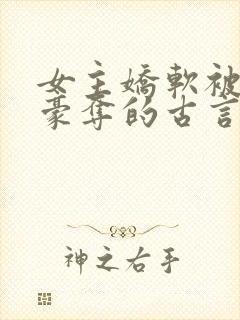 女主嬌軟被
豪奪的古言
神之右手